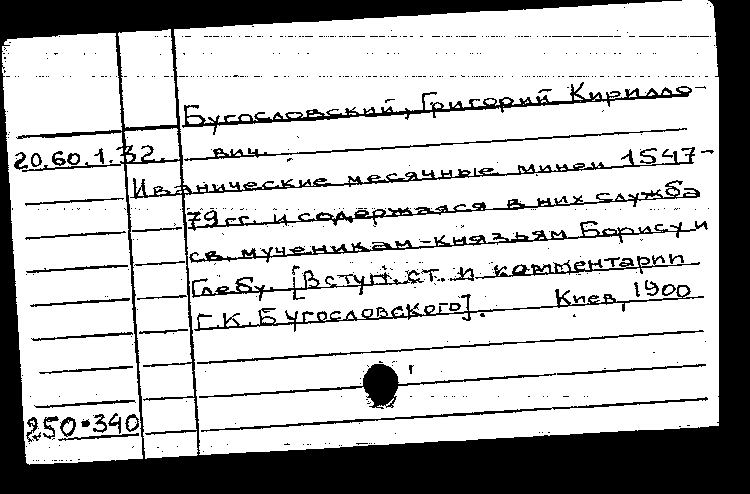 Бугословский, Григорий Кирилло-
20.60.1.32. вич.
Иванические месячные минеи 1547-
79 гг. и содержаяся в них служба
св. мученикам-князьям Борису и
Глебу. [Вступ. ст. и комментарии
Г.К. Бугословского]. Киев, 1900
250*340